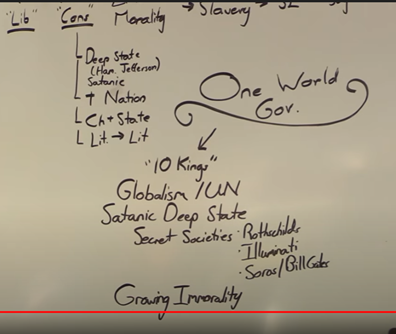 "Lib" "Cons" Morality → Slavery →
Deep State
(Ham. Jefferson)
Satanic
† Nation
Ch + State
Lit. → Lit
One World
Gov.
"10 Kings"
Globalism / UN
Satanic Deep State
Secret Societies · Rothschilds
· Illuminati
· Soros/Bill Gates
Growing Immorality